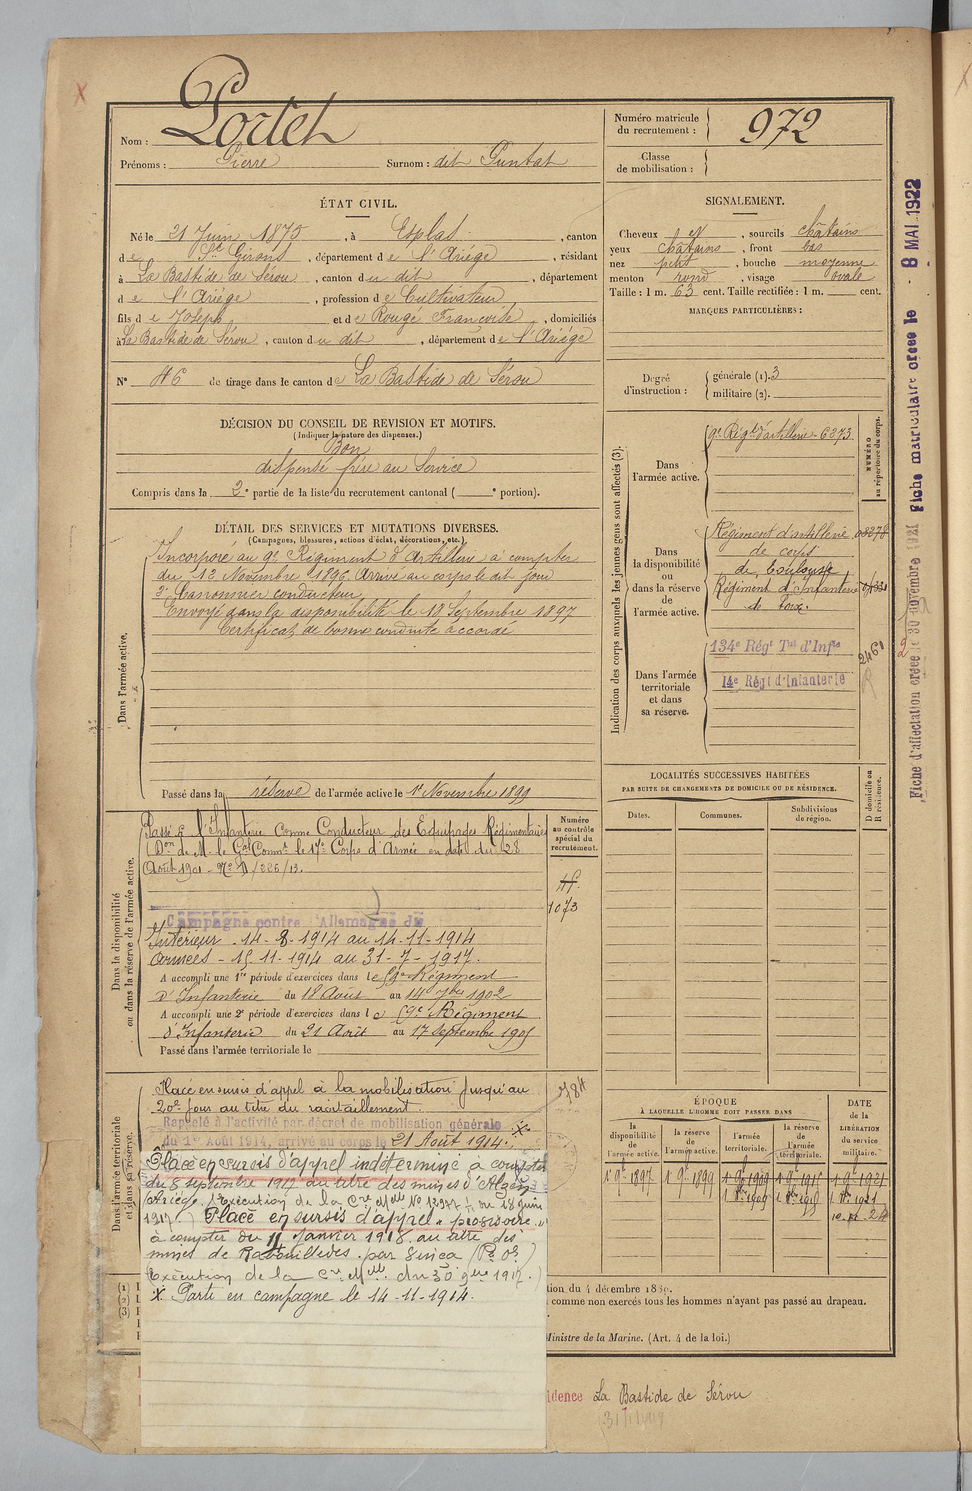 Nom : Portet
Prénoms : Pierre Surnom : dit Puntat
Numéro matricule du recrutement : 972
Classe de mobilisation :
ÉTAT CIVIL.
Né le 21 Juin 1875, à Esplas, canton
de St Girons, département de l'Ariège, résidant
à La Bastide de Sérou, canton du dit, département
de l'Ariège, profession de Cultivateur,
fils de Joseph et de Rougé Françoise, domiciliés
à La Bastide de Sérou, canton du dit, département de l'Ariège
N° 46 de tirage dans le canton de La Bastide de Sérou
SIGNALEMENT.
Cheveux et, sourcils châtains
yeux châtains, front bas
nez petit, bouche moyenne
menton rond, visage ovale
Taille : 1 m. 63 cent. Taille rectifiée : 1 m. cent.
MARQUES PARTICULIÈRES :
Degré d'instruction : générale (1). 3
militaire (2).
DÉCISION DU CONSEIL DE REVISION ET MOTIFS.
(Indiquer la nature des dispenses.)
Bon
dispensé frère au Service
Compris dans la 2e partie de la liste du recrutement cantonal ( e portion).
DÉTAIL DES SERVICES ET MUTATIONS DIVERSES.
(Campagnes, blessures, actions d'éclat, décorations, etc.)
Dans l'armée active.
Incorporé au 9e Régiment d'Artillerie à compter
du 12 Novembre 1896. Arrivé au corps le dit jour
2e Canonnier conducteur
Envoyé dans la disponibilité le 19 Septembre 1897
Certificat de bonne conduite accordé
Passé dans la réserve de l'armée active le 1er Novembre 1899
Indication des corps auxquels les jeunes gens sont affectés (3).
NUMÉRO au répertoire du corps.
Dans l'armée active.
9e Régt d'artillerie 6273
Dans la disponibilité ou dans la réserve de l'armée active.
Régiment d'artillerie
de corps
de Toulouse
Régiment d'Infanterie
de Foix.
Dans l'armée territoriale et dans sa réserve.
134e Régt Tal d'Infie
14e Régt d'Infanterie
2460
LOCALITÉS SUCCESSIVES HABITÉES
PAR SUITE DE CHANGEMENTS DE DOMICILE OU DE RÉSIDENCE.
Dates. Communes. Subdivisions de région. D domicile ou R résidence.
Dans la disponibilité ou dans la réserve de l'armée active.
Numéro au contrôle spécial du recrutement.
Passé à l'Infanterie comme Conducteur des Equipages Régimentaires
(Don de M. le Gal Commt le 17e Corps d'Armée en date du 28
Août 1901 - No D/226/13.
1073
Campagne contre l'Allemagne du
Intérieur - 14-8-1914 au 14-11-1914
Armées - 15-11-1914 au 31-7-1917.
A accompli une 1re période d'exercices dans le 59e Régiment
d'Infanterie du 18 Août au 14 7bre 1902
A accompli une 2e période d'exercices dans le 59e Régiment
d'Infanterie du 21 Août au 17 Septembre 1905
Passé dans l'armée territoriale le
Dans l'armée territoriale et dans sa réserve.
784
Placé en sursis d'appel à la mobilisation jusqu'au
20e jour au titre du ravitaillement.
Rappelé à l'activité par décret de mobilisation générale
du 1er Août 1914, arrivé au corps le 21 Août 1914. X
Placé en sursis d'appel indéterminé à compter
du 5 septembre 1917 au titre des mines d'Alzen
(Ariège). (Exécution de la Cre Mlle No du 18 juin
1917.) Placé en sursis d'appel "provisoire"
à compter du 11 Janvier 1918 au titre des
mines de Rabouillèdes par Senica (P. O.)
(Exécution de la Cre Mlle du 30 9bre 1917.)
X Parti en campagne le 14-11-1914.
ÉPOQUE
À LAQUELLE L'HOMME DOIT PASSER DANS
la disponibilité de l'armée active. la réserve de l'armée active. l'armée territoriale. la réserve de l'armée territoriale.
DATE de la LIBÉRATION du service militaire.
1 9e 1897 1 9e 1899 1 9e 1909 1 9e 1915 1 9e 1921
tion, du 4 décembre 1889.
comme non exercés tous les hommes n'ayant pas passé au drapeau.
Ministre de la Marine. (Art. 4 de la loi.)
idence La Bastide de Sérou
Fiche d'affectation créée le 30 novembre 1921
Fiche matriculaire créée le 8 MAI 1922